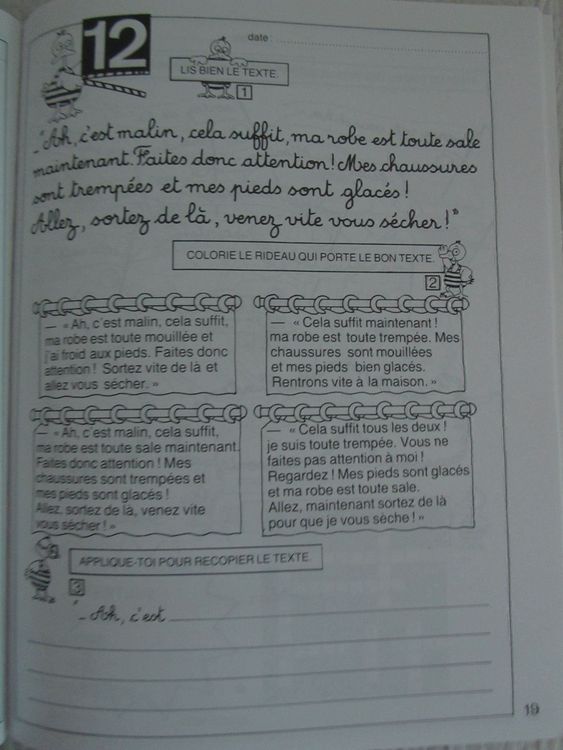 12
date :
LIS BIEN LE TEXTE.
1
- "Ah, c'est malin, cela suffit, ma robe est toute sale
maintenant. Faites donc attention! Mes chaussures
sont trempées et mes pieds sont glacés!
Allez, sortez de là, venez vite vous sécher!"
COLORIE LE RIDEAU QUI PORTE LE BON TEXTE.
2
— « Ah, c'est malin, cela suffit,
ma robe est toute mouillée et
j'ai froid aux pieds. Faites donc
attention ! Sortez vite de là et
allez vous sécher. »
— « Cela suffit maintenant !
ma robe est toute trempée. Mes
chaussures sont mouillées
et mes pieds bien glacés.
Rentrons vite à la maison. »
— « Ah, c'est malin, cela suffit,
ma robe est toute sale maintenant.
Faites donc attention ! Mes
chaussures sont trempées et
mes pieds sont glacés !
Allez, sortez de là, venez vite
vous sécher ! »
— « Cela suffit tous les deux !
je suis toute trempée. Vous ne
faites pas attention à moi !
Regardez ! Mes pieds sont glacés
et ma robe est toute sale.
Allez, maintenant sortez de là
pour que je vous sèche ! »
APPLIQUE-TOI POUR RECOPIER LE TEXTE.
3
- Ah, c'est
19